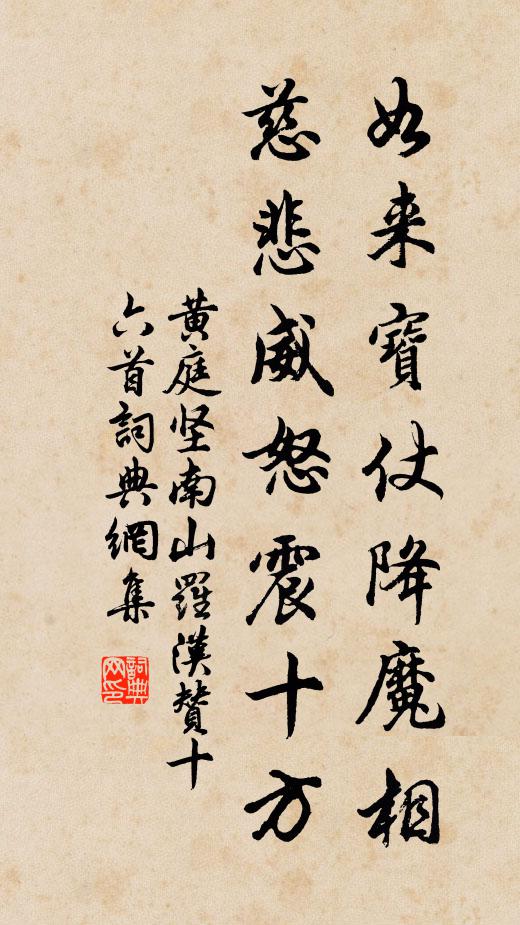 如来寶仗降魔相
慈悲威怒震十方
黄庭坚南山羅漢賛十
六首詞典網集
詞典網印